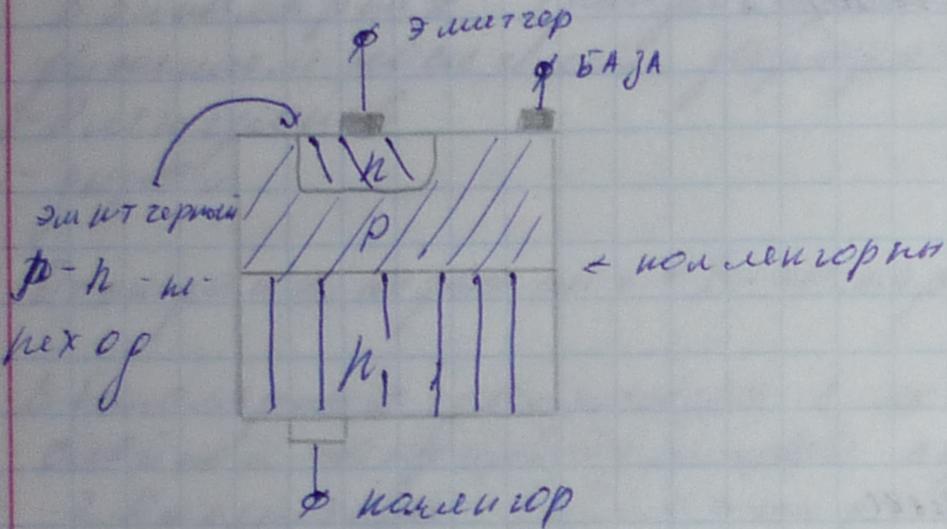 эмиттер
БАЗА
n
эмиттерный
p
p-n-пе-
реход
← коллекторны
n
коллектор